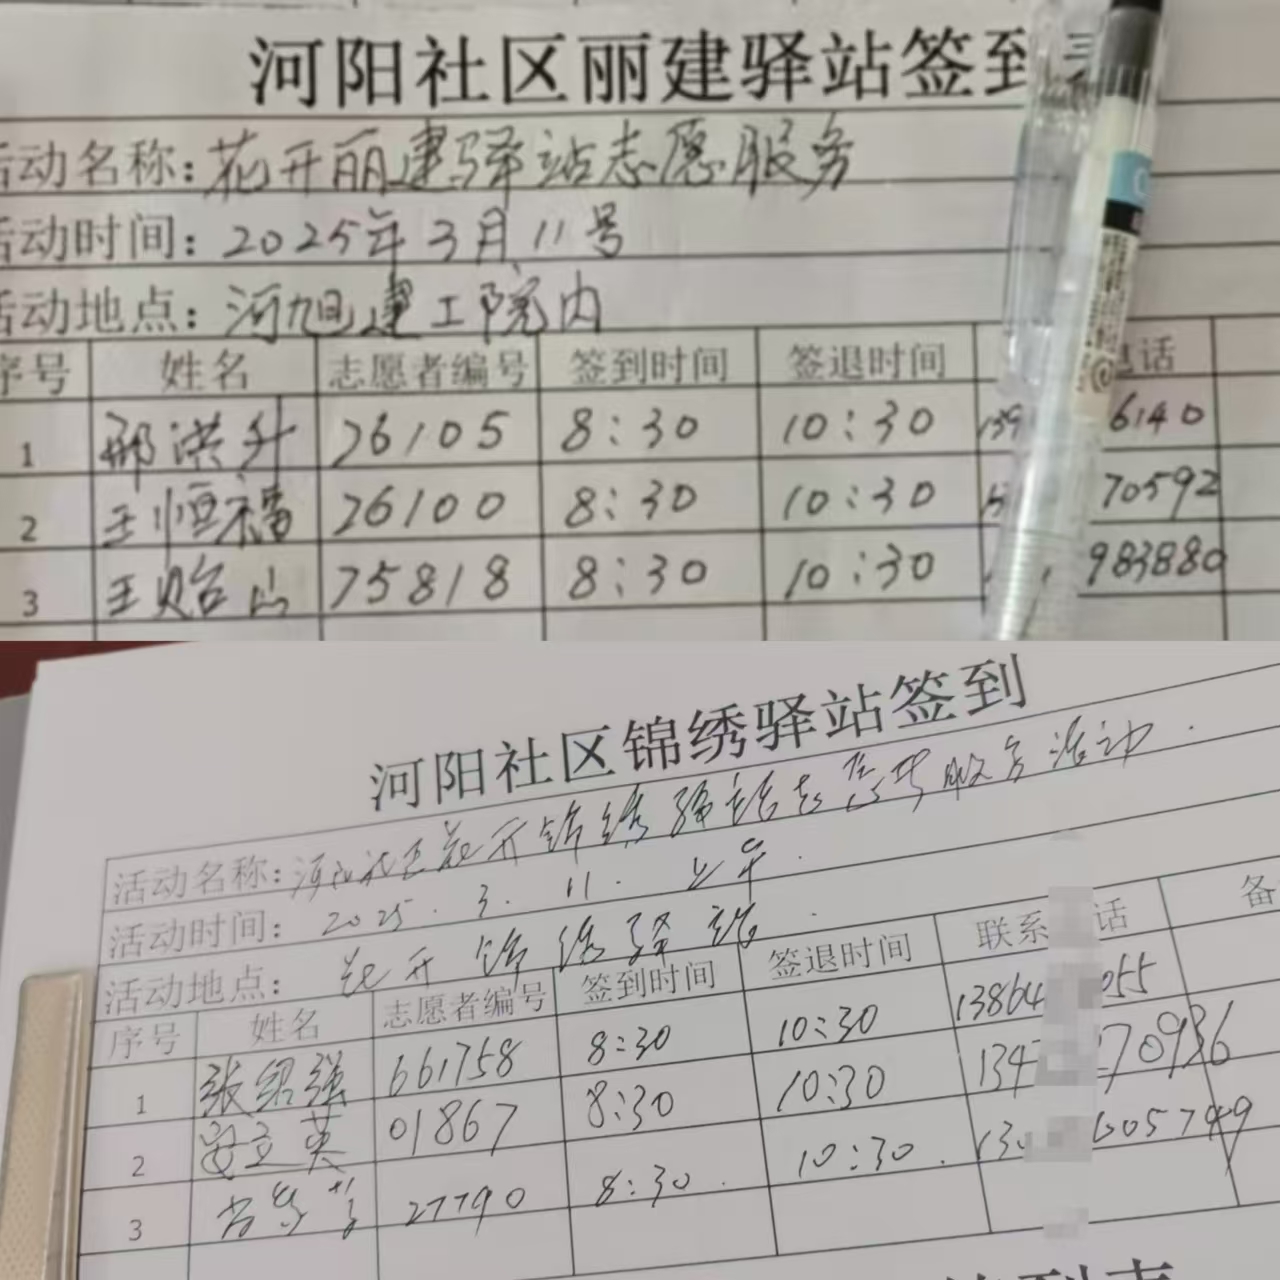 河阳社区丽建驿站签到
活动名称:花开丽建驿站志愿服务
活动时间:2025年3月11号
活动地点:河旭建工院内
序号 姓名 志愿者编号 签到时间 签退时间 电话
1 邢洪升 26105 8:30 10:30 139 6140
2 王恒福 26100 8:30 10:30 70592
3 王贻山 75818 8:30 10:30 983880
河阳社区锦绣驿站签到
活动名称:河阳社区花开锦绣驿站志愿服务活动.
活动时间: 2025.3.11.上午.
活动地点: 花开锦绣驿站.
序号 姓名 志愿者编号 签到时间 签退时间 联系 话 备
1 张绍强 661758 8:30 10:30 13864 055
2 安立英 01867 8:30 10:30 134 70936
3 27790 8:30. 10:30. 130 605749